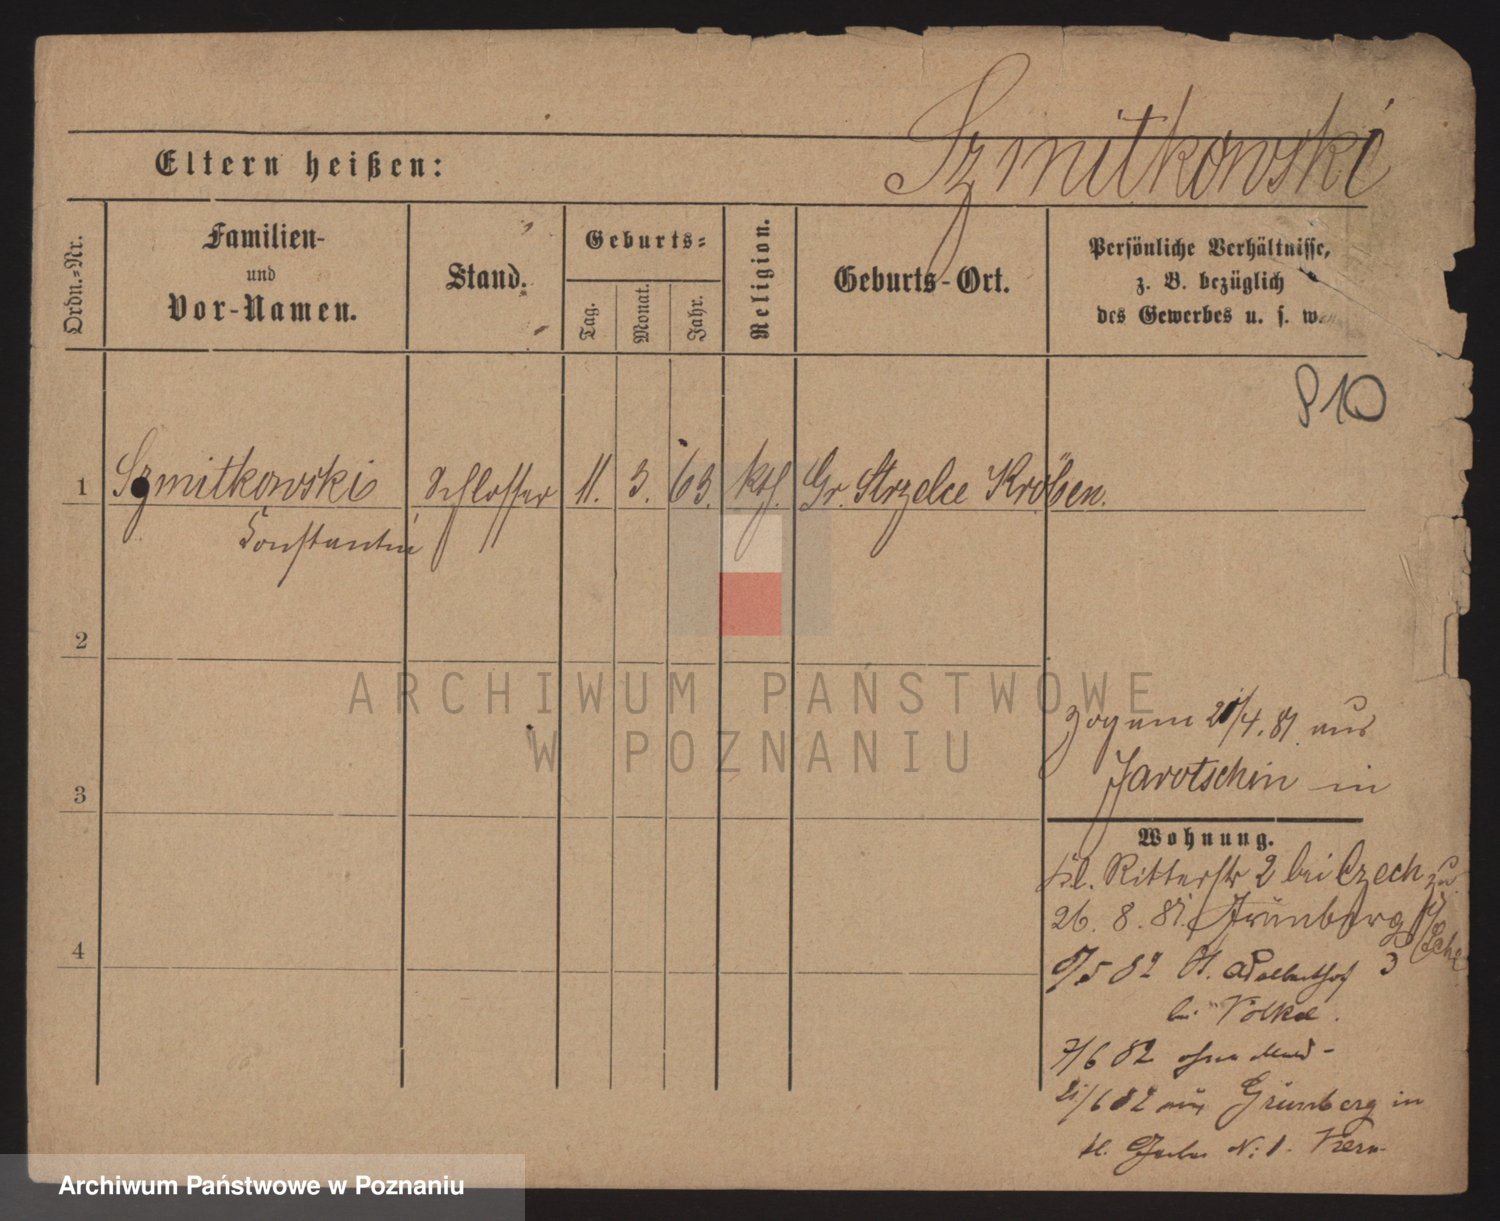 Szmitkowski
Eltern heißen:
Ordn.-Nr.
Familien-
und
Vor-Namen.
Stand.
Geburts-
Tag.
Monat.
Jahr.
Religion.
Geburts-Ort.
Persönliche Verhältnisse,
z. B. bezüglich
des Gewerbes u. s. w.
910
1
Szmitkowski
Constantin
Schlosser
11.
3.
63.
kth.
Gr. Strzelce Kröben.
2
3
4
ARCHIWUM PAŃSTWOWE
W POZNANIU
zog am 4. 81 aus
Jarotschin in
Wohnung.
kl. Ritterstr 2 bei Czech
26. 8. 81. Grünberg
5 82 St. Adalberthof 3
bei
7/6 82 ohne
21/6 82 aus Grünberg in
kl. Gerber N: 1.
Archiwum Państwowe w Poznaniu